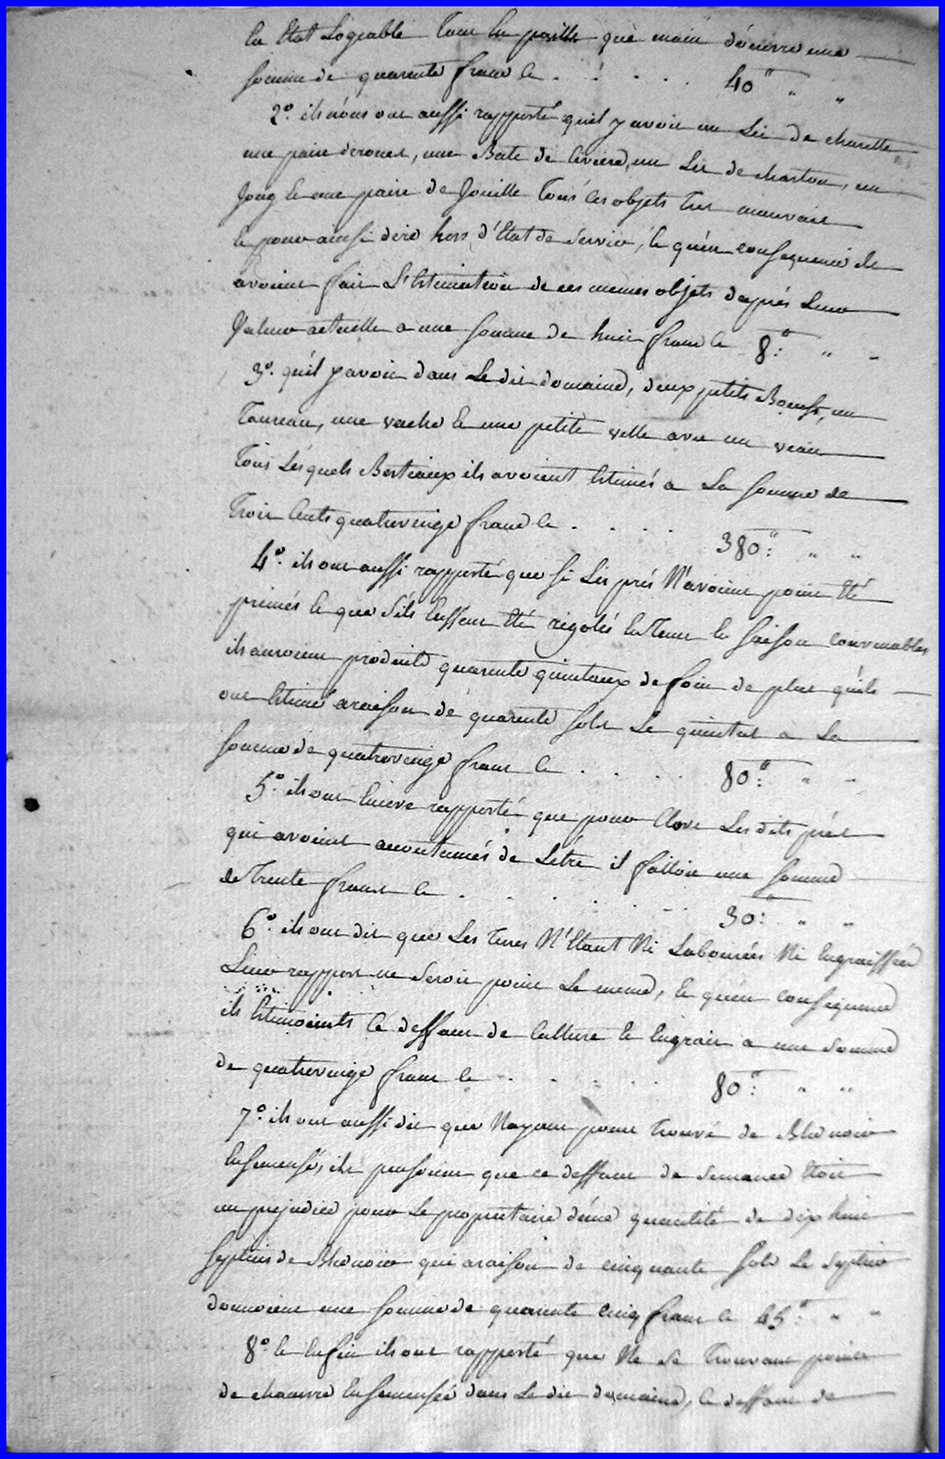 En Etat Logeable Tant En paille que main dóeuvre une
somme de quarente franc Ci . . . . . 40" " "
2° ils nous ont aussi rapporté quil y avoit un Lit de charette
une paire deroues, une Bate de Civiere, un Lit de charton, un
Joug Et une paire de Jouille Tous les objets tres mauvais
Et pour ainsi dire hors d'Etat de Service, Et quen consequence ils
avoient fait L'Estimation de ces memes objets daprés Leur
Valeur actuelle a une somme de huit franc Ci 8:" " "
3° quil y avoit dans Le dit domaine, deux petits Boeufs, un
Taureau, une vache Et une petite velle avec un veau
Tous Lesquels Bestiaux ils avoient Estimés a La somme de
Trois Cents quatrevingt franc Ci . . . . 380:" " "
4° ils ont aussi rapporté que si Les prés N'avoient point Eté
primés Et que S'ils Eussent Eté rigolés En Tems Et Saison convenables
ils auroient produits quarente quintaux de foin de plus quils
ont Estimé araison de quarente sols Le quintal a La
somme de quatrevingt franc Ci . . . . 80:" " "
5° ils ont Encore rapporté que pour Clore Lesdits prés
qui avoient accoutumés de Létre il falloit une somme
de Trente franc Ci . . . . . . . 30:" " "
6° ils ont dit que Les Terres N'Etant Ni Labourées Ni Engraissées
Leur rapport ne Seroit point Le meme, Et quen consequence
ils Estimoients Ce deffaut de Culture Et Engrais a une Somme
de quatrevingt franc Ci . . . . . 80:" " "
7° ils ont aussi dit que Nayant point Trouvé de Blé noir
Ensemensé, ils pensoient que ce deffaut de Semance Etoit
un prejudice pour Le propriétaire d'une quantité de dix huit
Septiers de Blé noir qui araison de cinquante sols Le Septier
donnoient une somme de quarente cinq franc Ci 45:" " "
8° Et Enfin ils ont rapporté que Ne Se Trouvant point
de chanvre Ensemensée dans Le dit domaine, Ce deffaut de